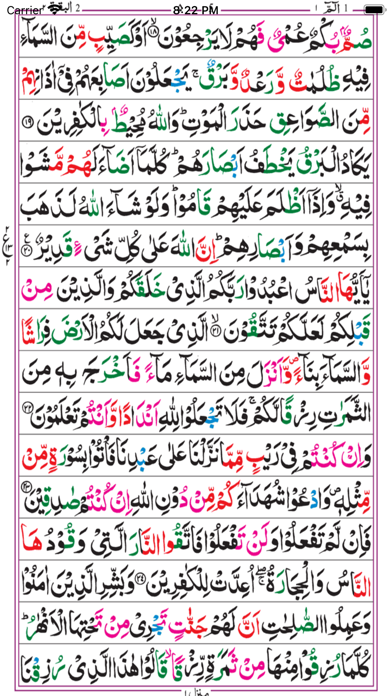 Carrier 8:22 PM
الٓمّٓ ١ 2 البقرة ٢
صُمٌّۢ بُكۡمٌ عُمۡىٌ فَهُمۡ لَا يَرۡجِعُوۡنَ ۙ‏﴿۱۸﴾ اَوۡ كَصَيِّبٍ مِّنَ السَّمَآءِ
فِيۡهِ ظُلُمٰتٌ وَّرَعۡدٌ وَّبَرۡقٌ​ ۚ يَجۡعَلُوۡنَ اَصَابِعَهُمۡ فِىۡٓ اٰذَانِهِمۡ
مِّنَ الصَّوَاعِقِ حَذَرَ الۡمَوۡتِ​ؕ وَاللّٰهُ مُحِيۡطٌۢ بِالۡكٰفِرِيۡنَ‏ ﴿۱۹﴾
يَكَادُ الۡبَرۡقُ يَخۡطَفُ اَبۡصَارَهُمۡ​ؕ كُلَّمَاۤ اَضَآءَ لَهُمۡ مَّشَوۡا
فِيۡهِۙ وَاِذَاۤ اَظۡلَمَ عَلَيۡهِمۡ قَامُوۡا​ؕ وَلَوۡ شَآءَ اللّٰهُ لَذَهَبَ
بِسَمۡعِهِمۡ وَاَبۡصَارِهِمۡ​ؕ اِنَّ اللّٰهَ عَلٰى كُلِّ شَىۡءٍ قَدِيۡرٌ‏ ﴿۲۰﴾
يٰٓاَيُّهَا النَّاسُ اعۡبُدُوۡا رَبَّكُمُ الَّذِىۡ خَلَقَكُمۡ وَالَّذِيۡنَ مِنۡ
قَبۡلِكُمۡ لَعَلَّكُمۡ تَتَّقُوۡنَ ۙ‏ ﴿۲۱﴾ الَّذِىۡ جَعَلَ لَـكُمُ الۡاَرۡضَ فِرَاشًا
وَّالسَّمَآءَ بِنَآءً ۪ وَّاَنۡزَلَ مِنَ السَّمَآءِ مَآءً فَاَخۡرَجَ بِهٖ مِنَ
الثَّمَرٰتِ رِزۡقًا لَّـكُمۡ​ۚ فَلَا تَجۡعَلُوۡا لِلّٰهِ اَنۡدَادًا وَّاَنۡتُمۡ تَعۡلَمُوۡنَ‏ ﴿۲۲﴾
وَاِنۡ کُنۡتُمۡ فِىۡ رَيۡبٍ مِّمَّا نَزَّلۡنَا عَلٰى عَبۡدِنَا فَاۡتُوۡا بِسُوۡرَةٍ مِّنۡ
مِّثۡلِهٖ وَادۡعُوۡا شُهَدَآءَكُمۡ مِّنۡ دُوۡنِ اللّٰهِ اِنۡ كُنۡتُمۡ صٰدِقِيۡنَ‏ ﴿۲۳﴾
فَاِنۡ لَّمۡ تَفۡعَلُوۡا وَلَنۡ تَفۡعَلُوۡا فَاتَّقُوا النَّارَ الَّتِىۡ وَقُوۡدُهَا
النَّاسُ وَالۡحِجَارَةُ ۖۚ اُعِدَّتۡ لِلۡكٰفِرِيۡنَ‏ ﴿۲۴﴾ وَبَشِّرِ الَّذِيۡنَ اٰمَنُوۡا
وَعَمِلُوا الصّٰلِحٰتِ اَنَّ لَهُمۡ جَنّٰتٍ تَجۡرِىۡ مِنۡ تَحۡتِهَا الۡاَنۡهٰرُ​ؕ
ڪُلَّمَا رُزِقُوۡا مِنۡهَا مِنۡ ثَمَرَةٍ رِّزۡقًا ۙ قَالُوۡا هٰذَا الَّذِىۡ رُزِقۡنَا